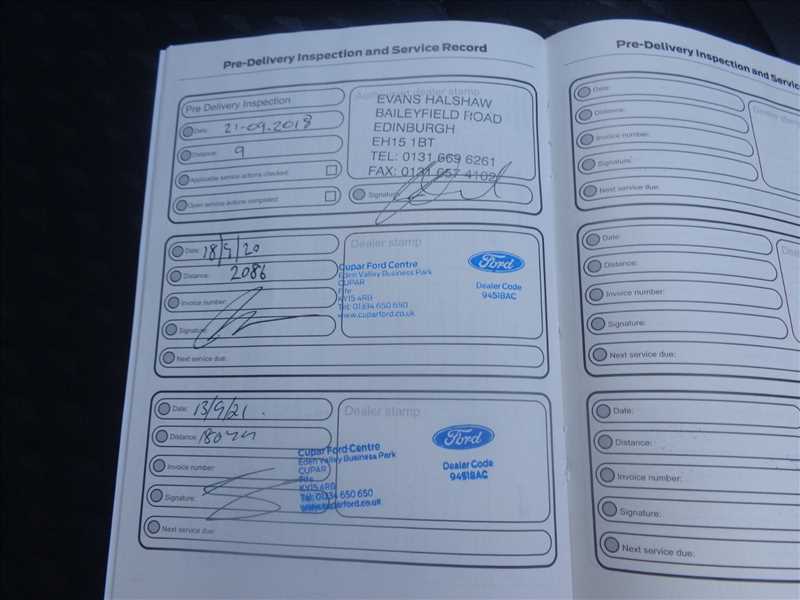 Pre-Delivery Inspection and Service Record
Pre Delivery Inspection
Date: 21-09.2018
Distance: 9
Applicable service actions checked
Open service actions completed
Authorised dealer stamp
EVANS HALSHAW
BAILEYFIELD ROAD
EDINBURGH
EH15 1BT
TEL: 0131 669 6261
FAX: 0131 657 4102
Signature:
Date: 18/9/20
Distance: 2086
Invoice number:
Signature:
Next service due:
Dealer stamp
Cupar Ford Centre
Eden Valley Business Park
CUPAR
Fife
KY15 4RB
Tel: 01334 650 650
www.cuparford.co.uk
Ford
Dealer Code
94518AC
Date: 13/9/21
Distance:
Invoice number:
Signature:
Next service due:
Dealer stamp
Cupar Ford Centre
Eden Valley Business Park
CUPAR
Fife
KY15 4RB
Tel: 01334 650 650
www.cuparford.co.uk
Ford
Dealer Code
94518AC
Pre-Delivery Inspection and Servic
Date:
Distance:
Invoice number:
Signature:
Next service due:
Dealer
Date:
Distance:
Invoice number:
Signature:
Next service due:
Date:
Distance:
Invoice number:
Signature:
Next service due: